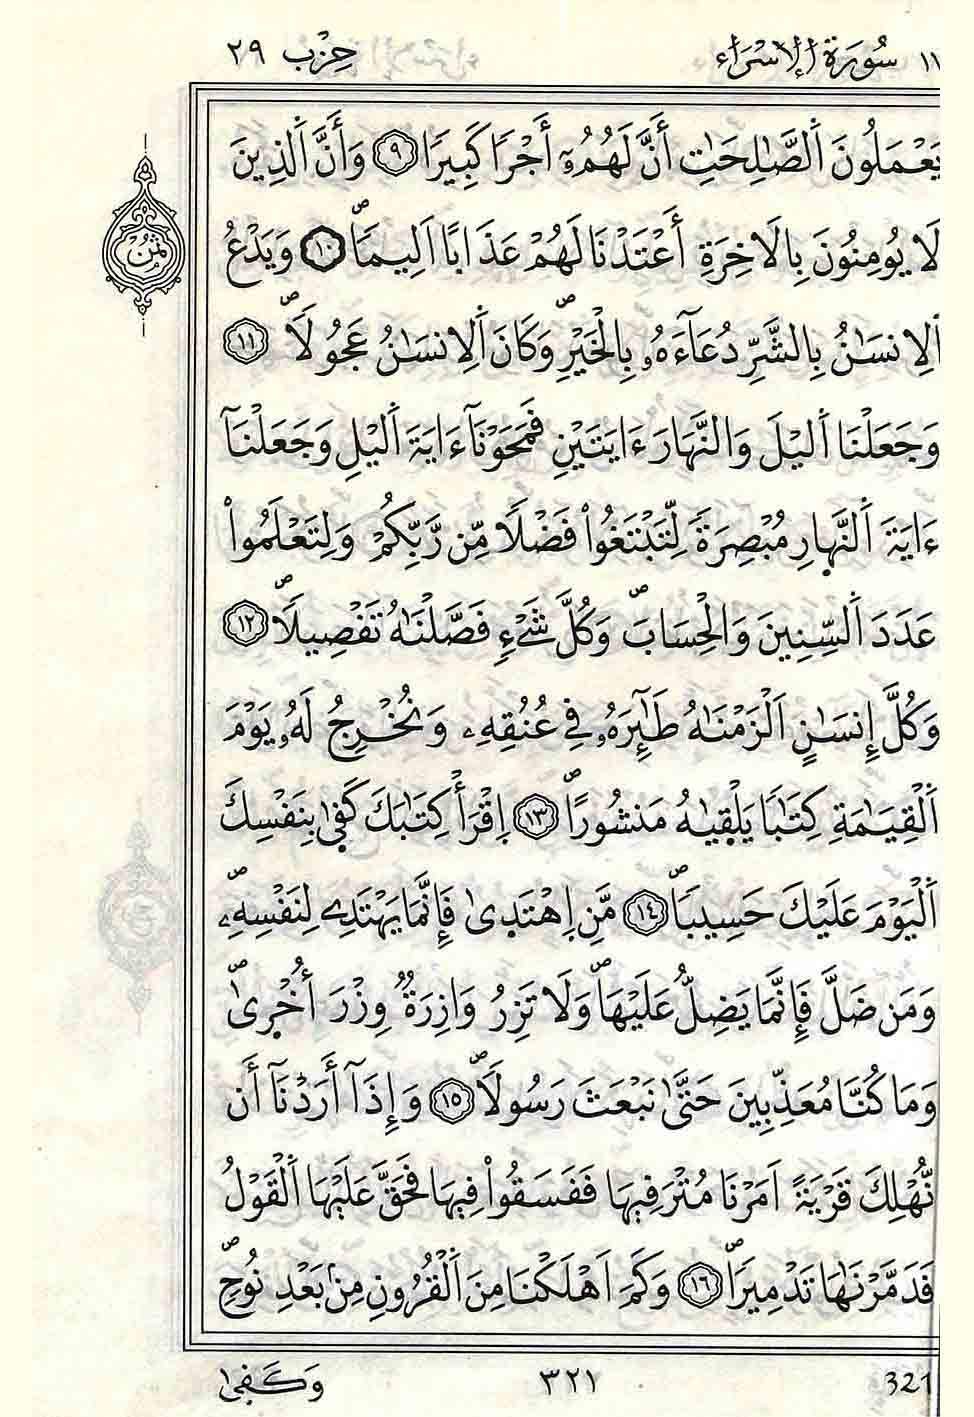 ١٧ سُورَةُ اَ۬لِاسْرَآءِ حِزْب ٢٩
يَعْمَلُونَ اَ۬لصَّٰلِحَٰتِ أَنَّ لَهُمُۥٓ أَجْراٗ كَبِيراٗ ٩ وَأَنَّ اَ۬لذِينَ
لَا يُومِنُونَ بِالَاخِرَةِ أَعْتَدْنَا لَهُمْ عَذَاباً اَلِيماٗۖ ١٠ وَيَدْعُ
ثُمُن
اُ۬لِانسَٰنُ بِالشَّرِّ دُعَآءَهُۥ بِالْخَيْرِۖ وَكَانَ اَ۬لِانسَٰنُ عَجُولاٗۖ ١١
وَجَعَلْنَا اَ۬ليْلَ وَالنَّهَارَ ءَايَتَيْنِ فَمَحَوْنَآ ءَايَةَ اَ۬ليْلِ وَجَعَلْنَآ
ءَايَةَ اَ۬لنَّهارِ مُبْصِرَةٗ لِّتَبْتَغُواْ فَضْلاٗ مِّن رَّبِّكُمْ وَلِتَعْلَمُواْ
عَدَدَ اَ۬لسِّنِينَ وَالْحِسَابَۖ وَكُلَّ شَےْءٖ فَصَّلْنَٰهُ تَفْصِيلاٗۖ ١٢
وَكُلَّ إِنسَٰنٍ اَلْزَمْنَٰهُ طَٰٓئِرَهُۥ فِے عُنُقِهِۦ وَنُخْرِجُ لَهُۥ يَوْمَ
اَ۬لْقِيَٰمَةِ كِتَٰباٗ يَلْقيٰهُ مَنشُوراًۖ ١٣ اِ۪قْرَأْ كِتَٰبَكَ كَفيٰ بِنَفْسِكَ
اَ۬لْيَوْمَ عَلَيْكَ حَسِيباٗۖ ١٤ مَّنِ اِ۪هْتَديٰ فَإِنَّمَا يَهْتَدِے لِنَفْسِهِۦۖ
وَمَن ضَلَّ فَإِنَّمَا يَضِلُّ عَلَيْهَاۖ وَلَا تَزِرُ وَازِرَةٞ وِزْرَ أُخْريٰۖ
وَمَا كُنَّا مُعَذِّبِينَ حَتَّيٰ نَبْعَثَ رَسُولاٗۖ ١٥ وَإِذَآ أَرَدْنَآ أَن
نُّهْلِكَ قَرْيَةً اَمَرْنَا مُتْرَفِيهَا فَفَسَقُواْ فِيهَا فَحَقَّ عَلَيْهَا اَ۬لْقَوْلُ
فَدَمَّرْنَٰهَا تَدْمِيراٗۖ ١٦ وَكَمَ اَهْلَكْنَا مِنَ اَ۬لْقُرُونِ مِنۢ بَعْدِ نُوحٖۖ
321 ٣٢١ وَكَفيٰ